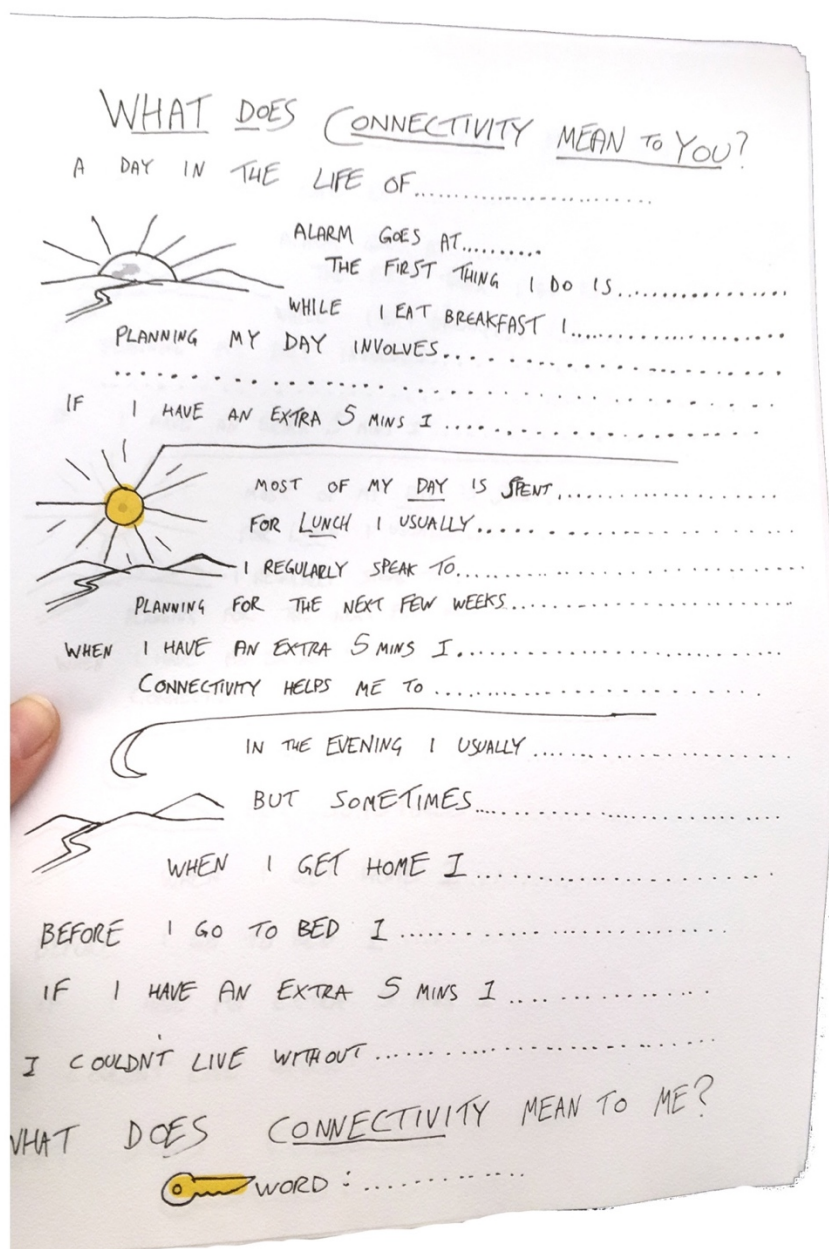 WHAT DOES CONNECTIVITY MEAN TO YOU?
A DAY IN THE LIFE OF..............................
ALARM GOES AT..........
THE FIRST THING I DO IS..................
WHILE I EAT BREAKFAST I......................
PLANNING MY DAY INVOLVES..........................
..............................
IF I HAVE AN EXTRA 5 MINS I ......................
MOST OF MY DAY IS SPENT......................
FOR LUNCH I USUALLY......................
I REGULARLY SPEAK TO..............................
PLANNING FOR THE NEXT FEW WEEKS..........................
WHEN I HAVE AN EXTRA 5 MINS I..........................
CONNECTIVITY HELPS ME TO ......................
IN THE EVENING I USUALLY ......................
BUT SOMETIMES..............................
WHEN I GET HOME I..........................
BEFORE I GO TO BED I ..........................
IF I HAVE AN EXTRA 5 MINS I ..................
I COULDN'T LIVE WITHOUT ..........................
WHAT DOES CONNECTIVITY MEAN TO ME?
WORD : ..............